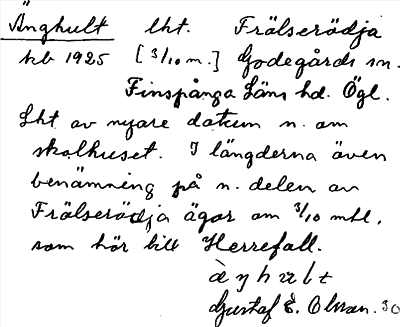 Änghult lht. Frälserödja
kb 1925 [3/10 m.] Godegårds sn.
Finspånga Läns hd. Ögl.
Lht av nyare datum n. om
skolhuset. I längderna även
benämning på n. delen av
Frälserödja ägor om 3/10 mtl.
som hör till Herrefall.
Gustaf E. Olsson. 30